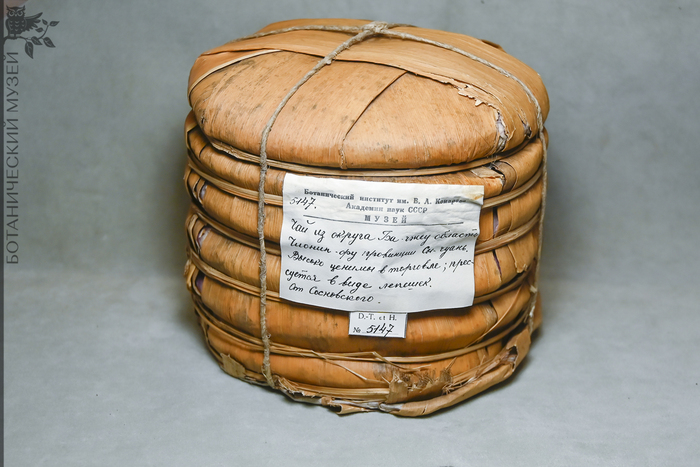 БОТАНИЧЕСКИЙ МУЗЕЙ
Ботанический институт им. В. Л. Комарова
5147. Академии наук СССР
МУЗЕЙ
Чай из округа Ба-чжу области
фу провинции Сы-чуань.
Высоко ценимы в торговле; прес-
суется в виде лепешек.
От Сосновского.
D.-T. et H.
№ 5147